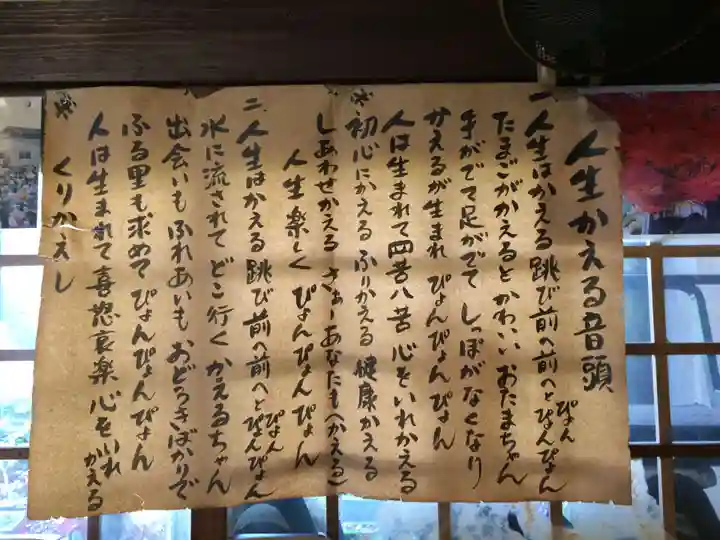 人生かえる音頭
一、人生はかえる 跳び前へ前へと ぴょん ぴょんぴょん
たまごがかえると かわいい おたまちゃん
手がでて足がでて しっぽがなくなり
かえるが生まれ ぴょんぴょんぴょん
人は生まれて四苦八苦 心をいれかえる
※初心にかえる ふりかえる 健康かえる
しあわせかえる さぁーあなたも(かえる)
人生楽しく ぴょんぴょんぴょん
二、人生はかえる 跳び前へ前へと ぴょん ぴょんぴょん
水に流されて どこ行く かえるちゃん
出会いもふれあいも おどろきばかりで
ふる里も求めて ぴょんぴょんぴょん
人は生まれて喜怒哀楽 心をいれかえる
※くりかえし